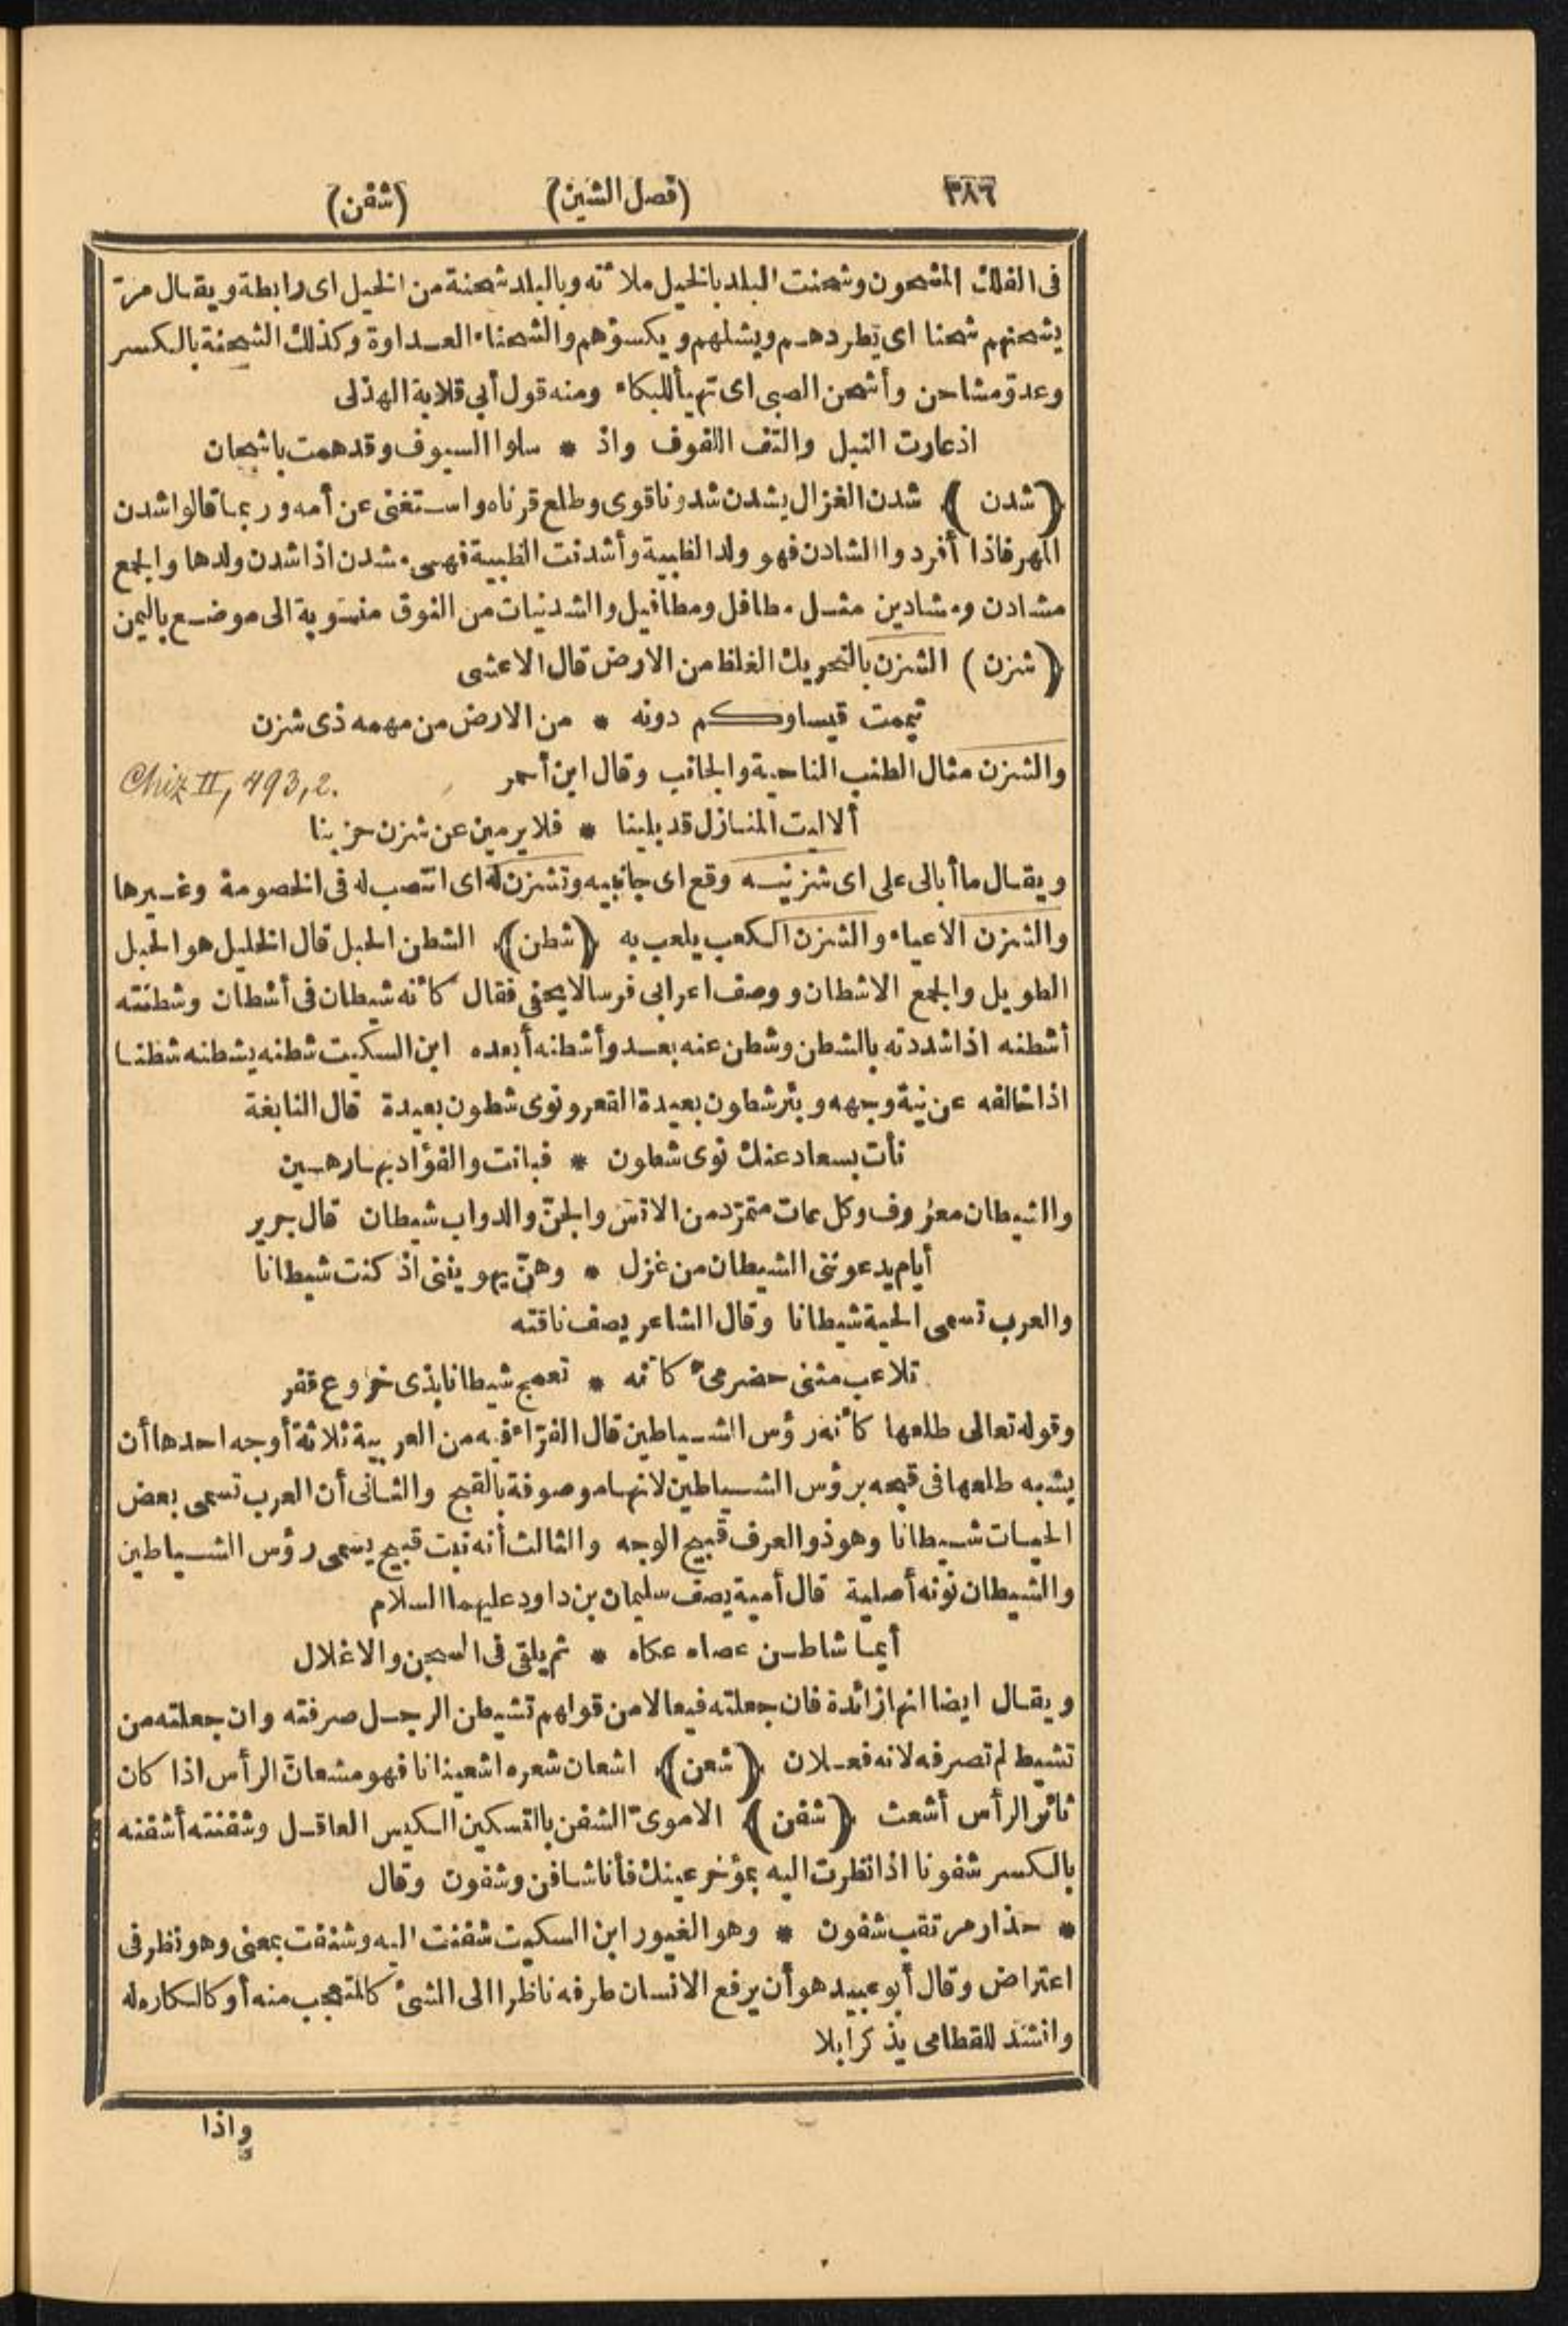 ٣٨٦ (فصل الشين) (شفن)
فى الفلك المشحون وشحنت البلد بالخيل ملأته وبالبلد شحنة من الخيل اى رابطة ويقال مرّ
يشحنهم شحنا اى يطردهم ويشلهم ويكسؤهم والشحناء العداوة وكذلك الشحنة بالكسر
وعدوّ مشاحن وأشحن الصبى اى تهيأ للبكاء ومنه قول أبى قلابة الهذلى
اذ عارت النبل والتف اللفوف واذ * سلوا السيوف وقد همت باشحان
﴿شدن﴾ شدن الغزال يشدن شدونا قوى وطلع قرناه واستغنى عن أمه وربما قالوا شدن
المهر فاذا أفردوا الشادن فهو ولد الظبية وأشدنت الظبية فهى مشدن اذا شدن ولدها والجمع
مشادن ومشادين مثل مطافل ومطافيل والشدنيات من النوق منسوبة الى موضع باليمن
﴿شزن﴾ الشزن بالتحريك الغلظ من الارض قال الاعشى
تيممت قيسا وكم دونه * من الارض من مهمه ذى شزن
والشزن مثال الطنب الناحية والجانب وقال ابن أحمر
Chiz II, 493, 2.
ألا ليت المنازل قد بلينا * فلا يرمين عن شزن حزينا
ويقال ما أبالى على اى شزنيه وقع اى جانبيه وتشزن له اى انتصب له فى الخصومة وغيرها
والشزن الاعياء والشزن الكعب يلعب به ﴿شطن﴾ الشطن الحبل قال الخليل هو الحبل
الطويل والجمع الاشطان ووصف اعرابى فرسا لا يحفى فقال كأنه شيطان فى أشطان وشطنته
أشطنه اذا شددته بالشطن وشطن عنه بعد وأشطنه أبعده ابن السكيت شطنه يشطنه شطنا
اذا خالفه عن نية وجهه وبئر شطون بعيدة القعر ونوى شطون بعيدة قال النابغة
نأت بسعاد عنك نوى شطون * فبانت والفؤاد بها رهين
والشيطان معروف وكل عات متمرّد من الانس والجنّ والدواب شيطان قال جرير
أيام يدعوننى الشيطان من غزل * وهنّ يهويننى اذ كنت شيطانا
والعرب تسمى الحية شيطانا وقال الشاعر يصف ناقته
تلاعب مثنى حضرمىّ كأنه * تعمج شيطان بذى خروع قفر
وقوله تعالى طلعها كأنه رؤس الشياطين قال الفرّاء فيه من العربية ثلاثة أوجه احدها أن
يشبه طلعها فى قبحه برؤس الشياطين لانها موصوفة بالقبح والثانى أن العرب تسمى بعض
الحيات شيطانا وهو ذو العرف قبيح الوجه والثالث أنه نبت قبيح يسمى رؤس الشياطين
والشيطان نونه أصلية قال أمية يصف سليمان بن داود عليهما السلام
أيما شاطن عصاه عكاه * ثم يلقى فى السجن والاغلال
ويقال ايضا انها زائدة فان جعلته فيعالا من قولهم تشيطن الرجل صرفته وان جعلته من
تشيط لم تصرفه لانه فعلان ﴿شعن﴾ اشعان شعره اشعينانا فهو مشعانّ الرأس اذا كان
ثائر الرأس أشعث ﴿شفن﴾ الاموىّ الشفن بالتسكين الكيس العاقل وشفنته أشفنه
بالكسر شفونا اذا نظرت اليه بمؤخر عينك فأنا شافن وشفون وقال
* حذار مرتقب شفون * وهو الغيور ابن السكيت شفنت اليه وشنفت بمعنى وهو نظر فى
اعتراض وقال أبو عبيد هو أن يرفع الانسان طرفه ناظرا الى الشئ كالمتعجب منه أو كالكاره له
وانشد للقطامى يذكر ابلا
واذا